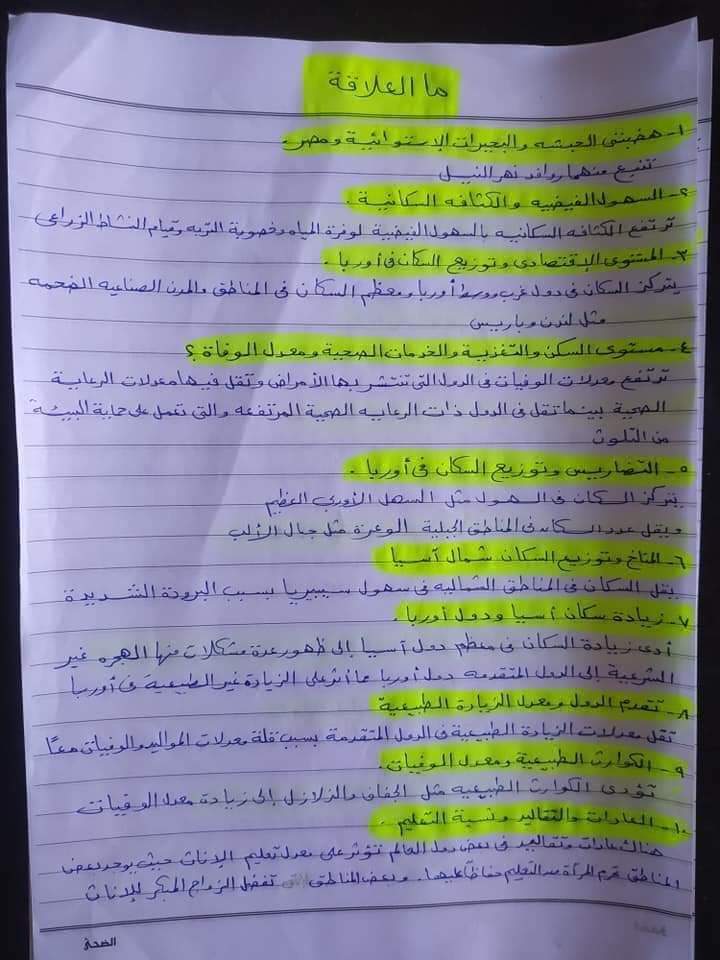 ما العلاقة
١- هضبتى الحبشه والبحيرات الإستوائية ومصر.
تنبع منهما روافد نهر النيل
٢- السهول الفيضيه والكثافه السكانية.
ترتفع الكثافه السكانيه بالسهول الفيضية لوفرة المياه وخصوبة التربه وقيام النشاط الزراعى
٣- المستوى الإقتصادى وتوزيع السكان فى أوربا.
يتركز السكان فى دول غرب ووسط أوربا ومعظم السكان فى المناطق والمدن الصناعيه الضخمه
مثل لندن وباريس
٤- مستوى السكن والتغذية والخدمات الصحية ومعدل الوفاة؟
ترتفع معدلات الوفيات فى الدول التى تنتشر بها الأمراض وتقل فيها معدلات الرعاية
الصحية بينما تقل فى الدول ذات الرعايه الصحية المرتفعه والتى تعمل على حماية البيئة
من التلوث
٥- التضاريس وتوزيع السكان فى أوربا.
يتركز السكان فى السهول مثل السهل الأوربى العظيم
ويقل عدد السكان فى المناطق الجبلية الوعرة مثل جبال الألب
٦- المناخ وتوزيع السكان شمال آسيا
يقل السكان فى المناطق الشماليه فى سهول سيبيريا بسبب البرودة الشديدة
٧- زيادة سكان أسيا ودول أوربا.
أدى زيادة السكان فى معظم دول أسيا إلى ظهور عدة مشكلات منها الهجره غير
الشرعية إلى الدول المتقدمه دول أوربا مما أثر على الزيادة غير الطبيعية فى أوربا
٨- تقدم الدول ومعدل الزيادة الطبيعية
تقل معدلات الزيادة الطبيعية فى الدول المتقدمة بسبب قلة معدلات المواليد والوفيات معًا
٩- الكوارث الطبيعية ومعدل الوفيات.
تؤدى الكوارث الطبيعيه مثل الجفاف والزلازل إلى زيادة معدل الوفيات
١٠- العادات والتقاليد ونسبة التعليم.
هناك عادات وتقاليد فى بعض دول العالم تؤثر على معدل تعليم الإناث حيث يوجد بعض
المناطق تحرم المرأة من التعليم حفاظاً عليها. وبعض المناطق تفضل الزواج المبكر للإناث
الضحى